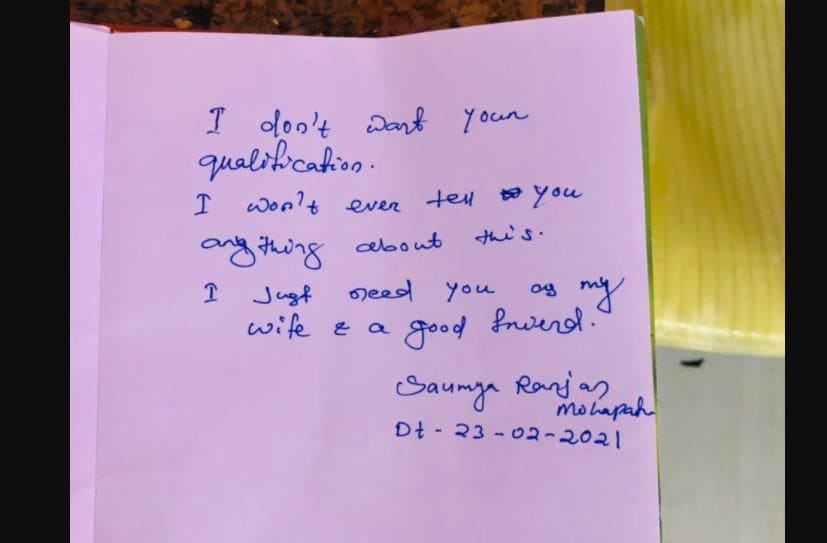 I don't want your
qualification.
I won't ever tell you
anything about this.
I Just need you as my
wife & a good friend.
Saumya Ranjan
Mohapatra
Dt - 23-02-2021